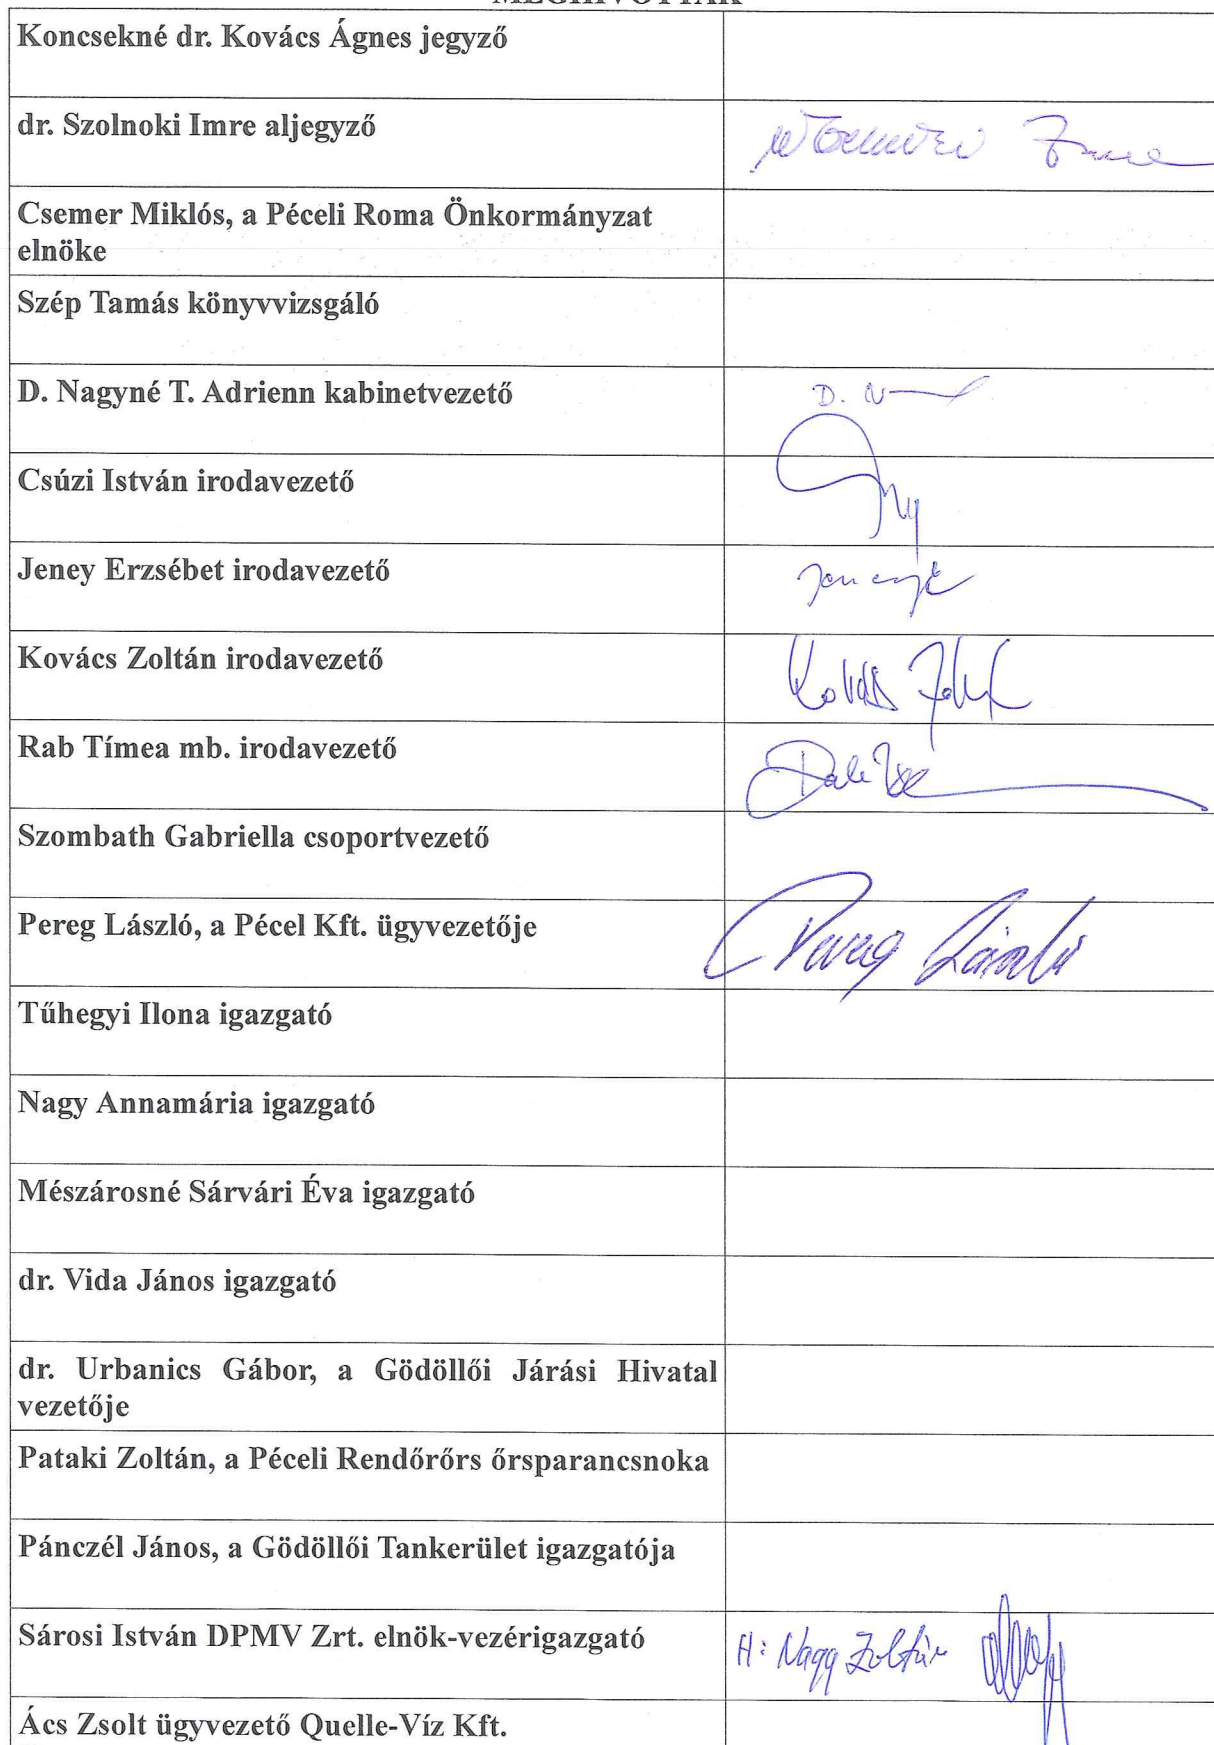 MEGHÍVOTTAK
Koncsekné dr. Kovács Ágnes jegyző
dr. Szolnoki Imre aljegyző
Csemer Miklós, a Péceli Roma Önkormányzat
elnöke
Szép Tamás könyvvizsgáló
D. Nagyné T. Adrienn kabinetvezető
D. N
Csúzi István irodavezető
Jeney Erzsébet irodavezető
Kovács Zoltán irodavezető
Kovács
Rab Tímea mb. irodavezető
Szombath Gabriella csoportvezető
Pereg László, a Pécel Kft. ügyvezetője
Pereg László
Tűhegyi Ilona igazgató
Nagy Annamária igazgató
Mészárosné Sárvári Éva igazgató
dr. Vida János igazgató
dr. Urbanics Gábor, a Gödöllői Járási Hivatal
vezetője
Pataki Zoltán, a Péceli Rendőrőrs őrsparancsnoka
Pánczél János, a Gödöllői Tankerület igazgatója
Sárosi István DPMV Zrt. elnök-vezérigazgató
H: Nagy Zoltán
Ács Zsolt ügyvezető Quelle-Víz Kft.